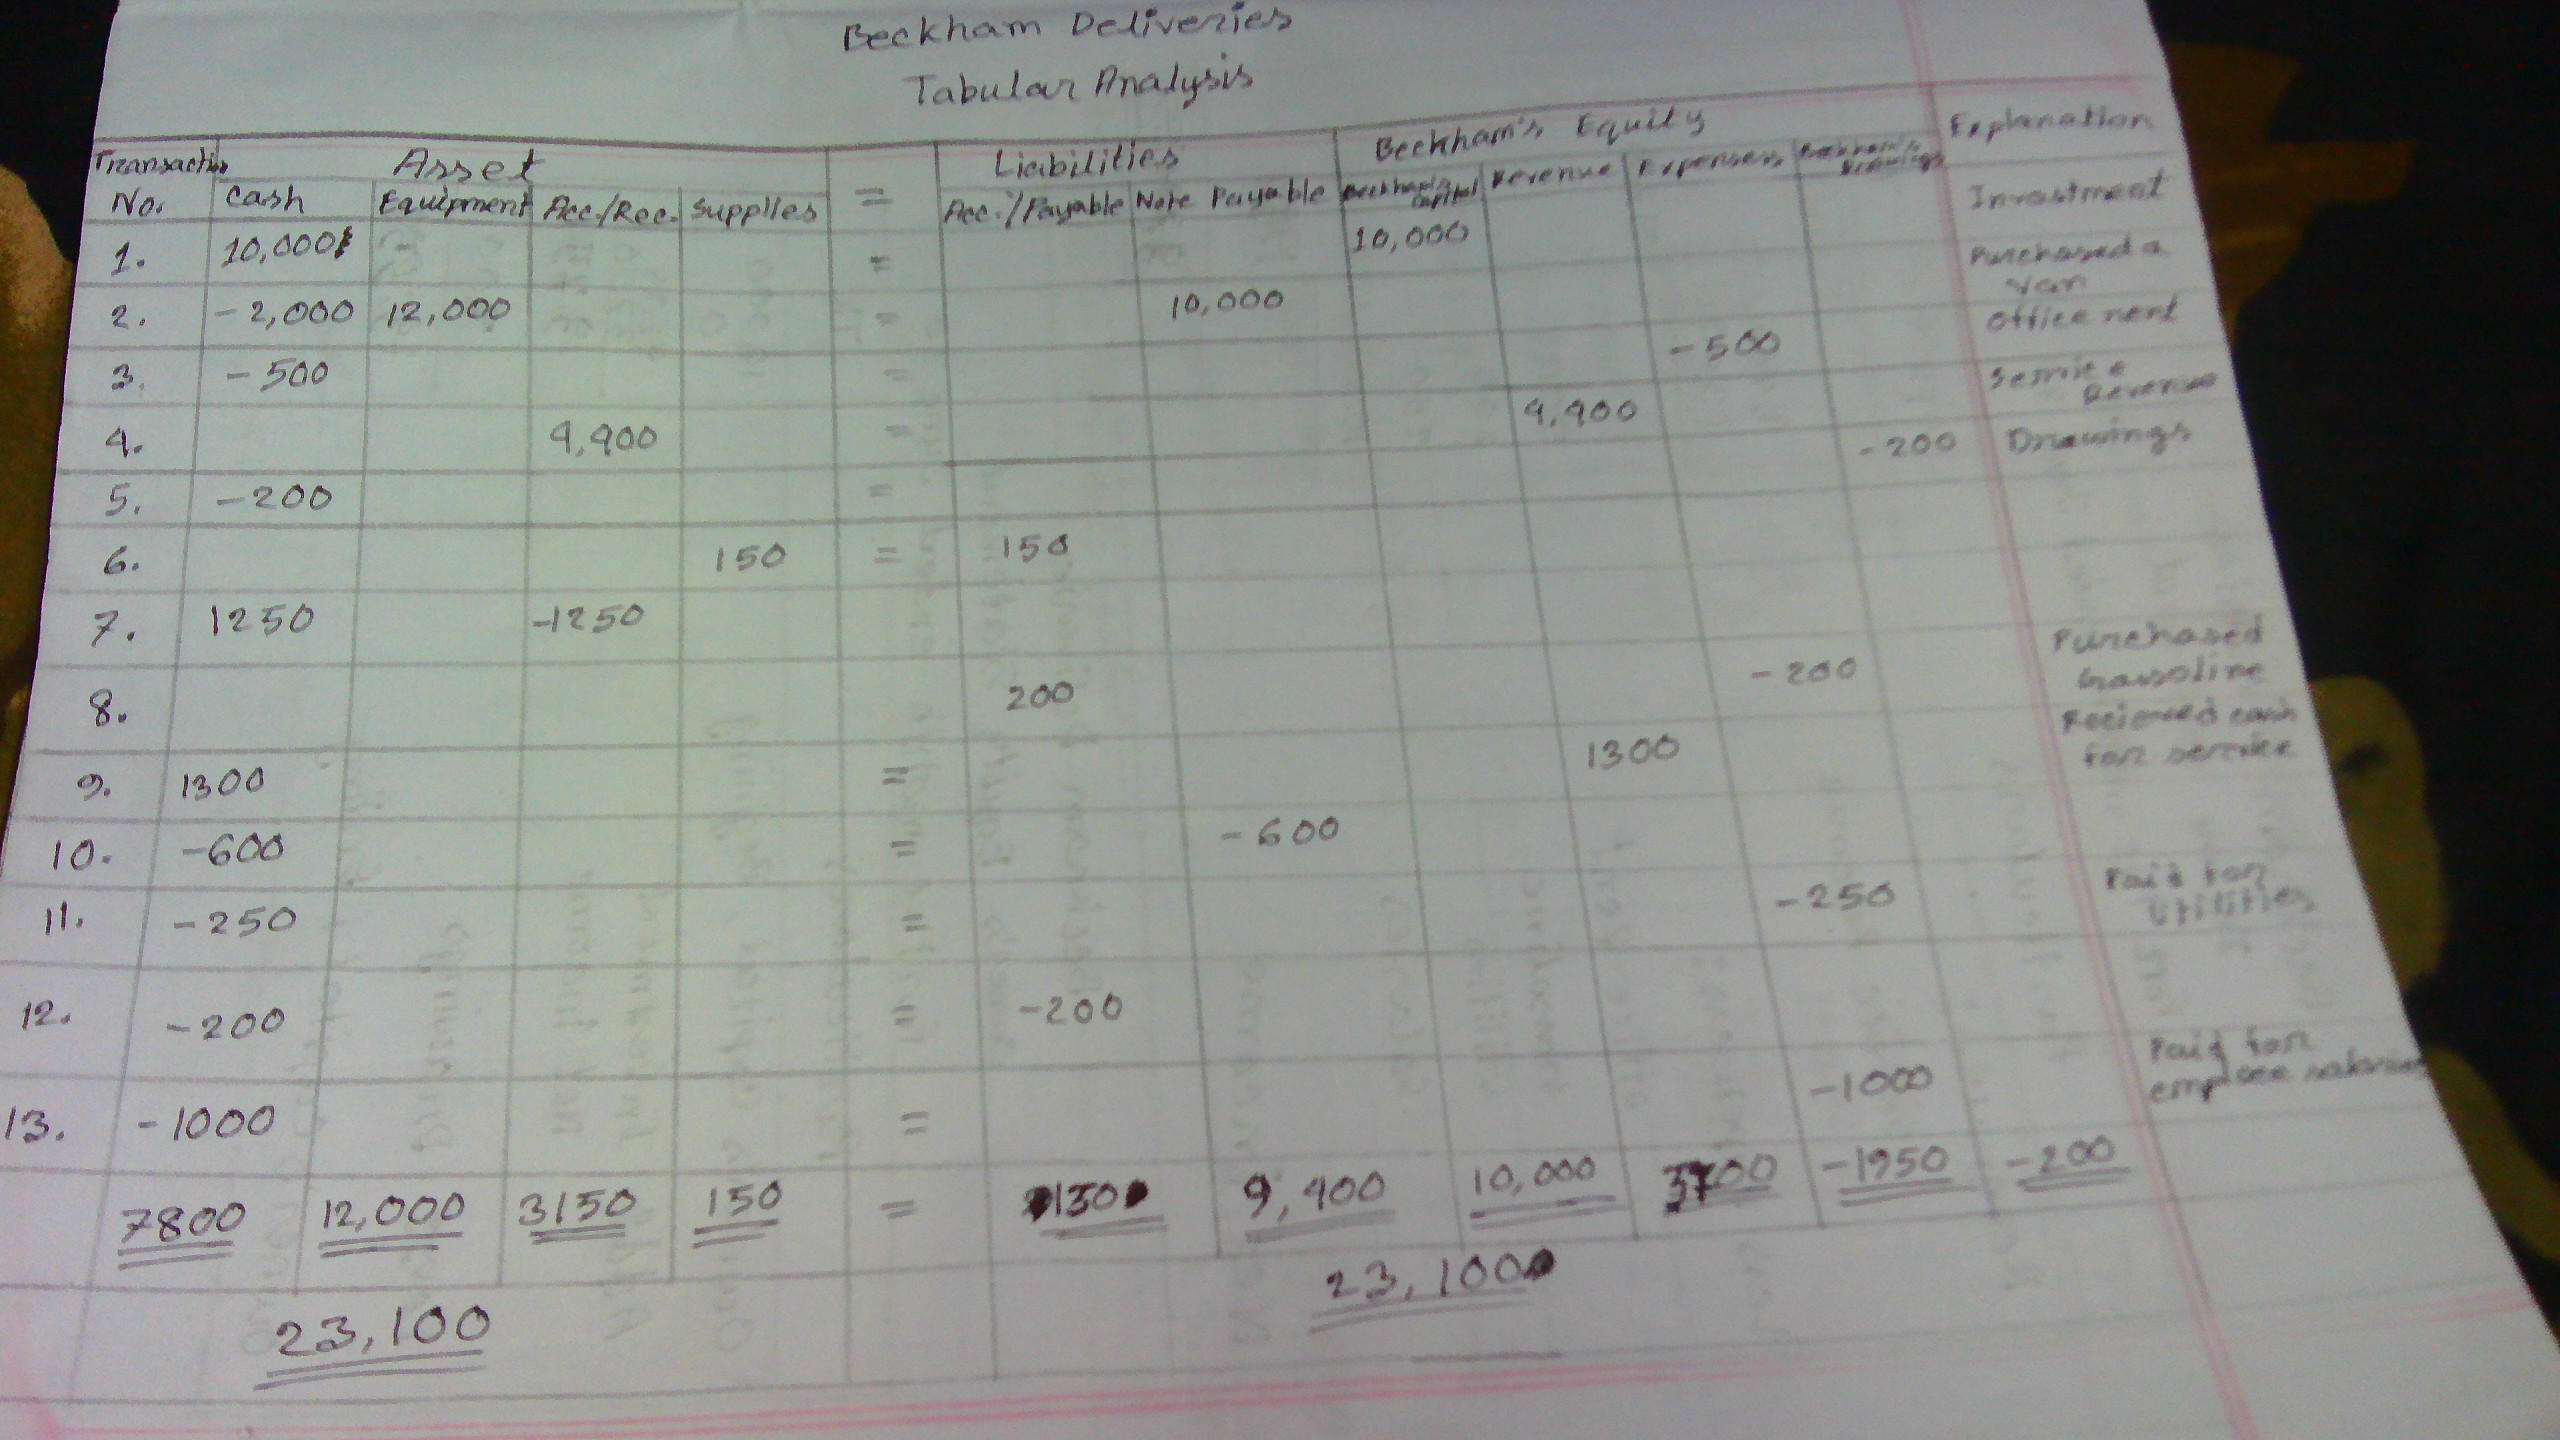 Beckham Deliveries
Tabular Analysis
Transaction No. Asset = Liabilities Beckham's Equity Explanation
Cash Equipment Acc./Rec. Supplies Acc./Payable Note Payable Beckham's Capital Revenue Expenses Beckham's Drawings
1. 10,000 = 10,000 Investment
2. -2,000 12,000 = 10,000 Purchased a van
3. -500 = -500 Office rent
4. 4,400 = 4,400 Service Revenue
5. -200 = -200 Drawings
6. 150 = 150
7. 1250 -1250
8. 200 -200 Purchased Gasoline
9. 1300 = 1300 Recieved cash for service
10. -600 = -600
11. -250 = -250 Paid for utilities
12. -200 = -200
13. -1000 = -1000 Paid for
7800 12,000 3150 150 = 150 9,400 10,000 5700 -1950 -200
23,100 23,100